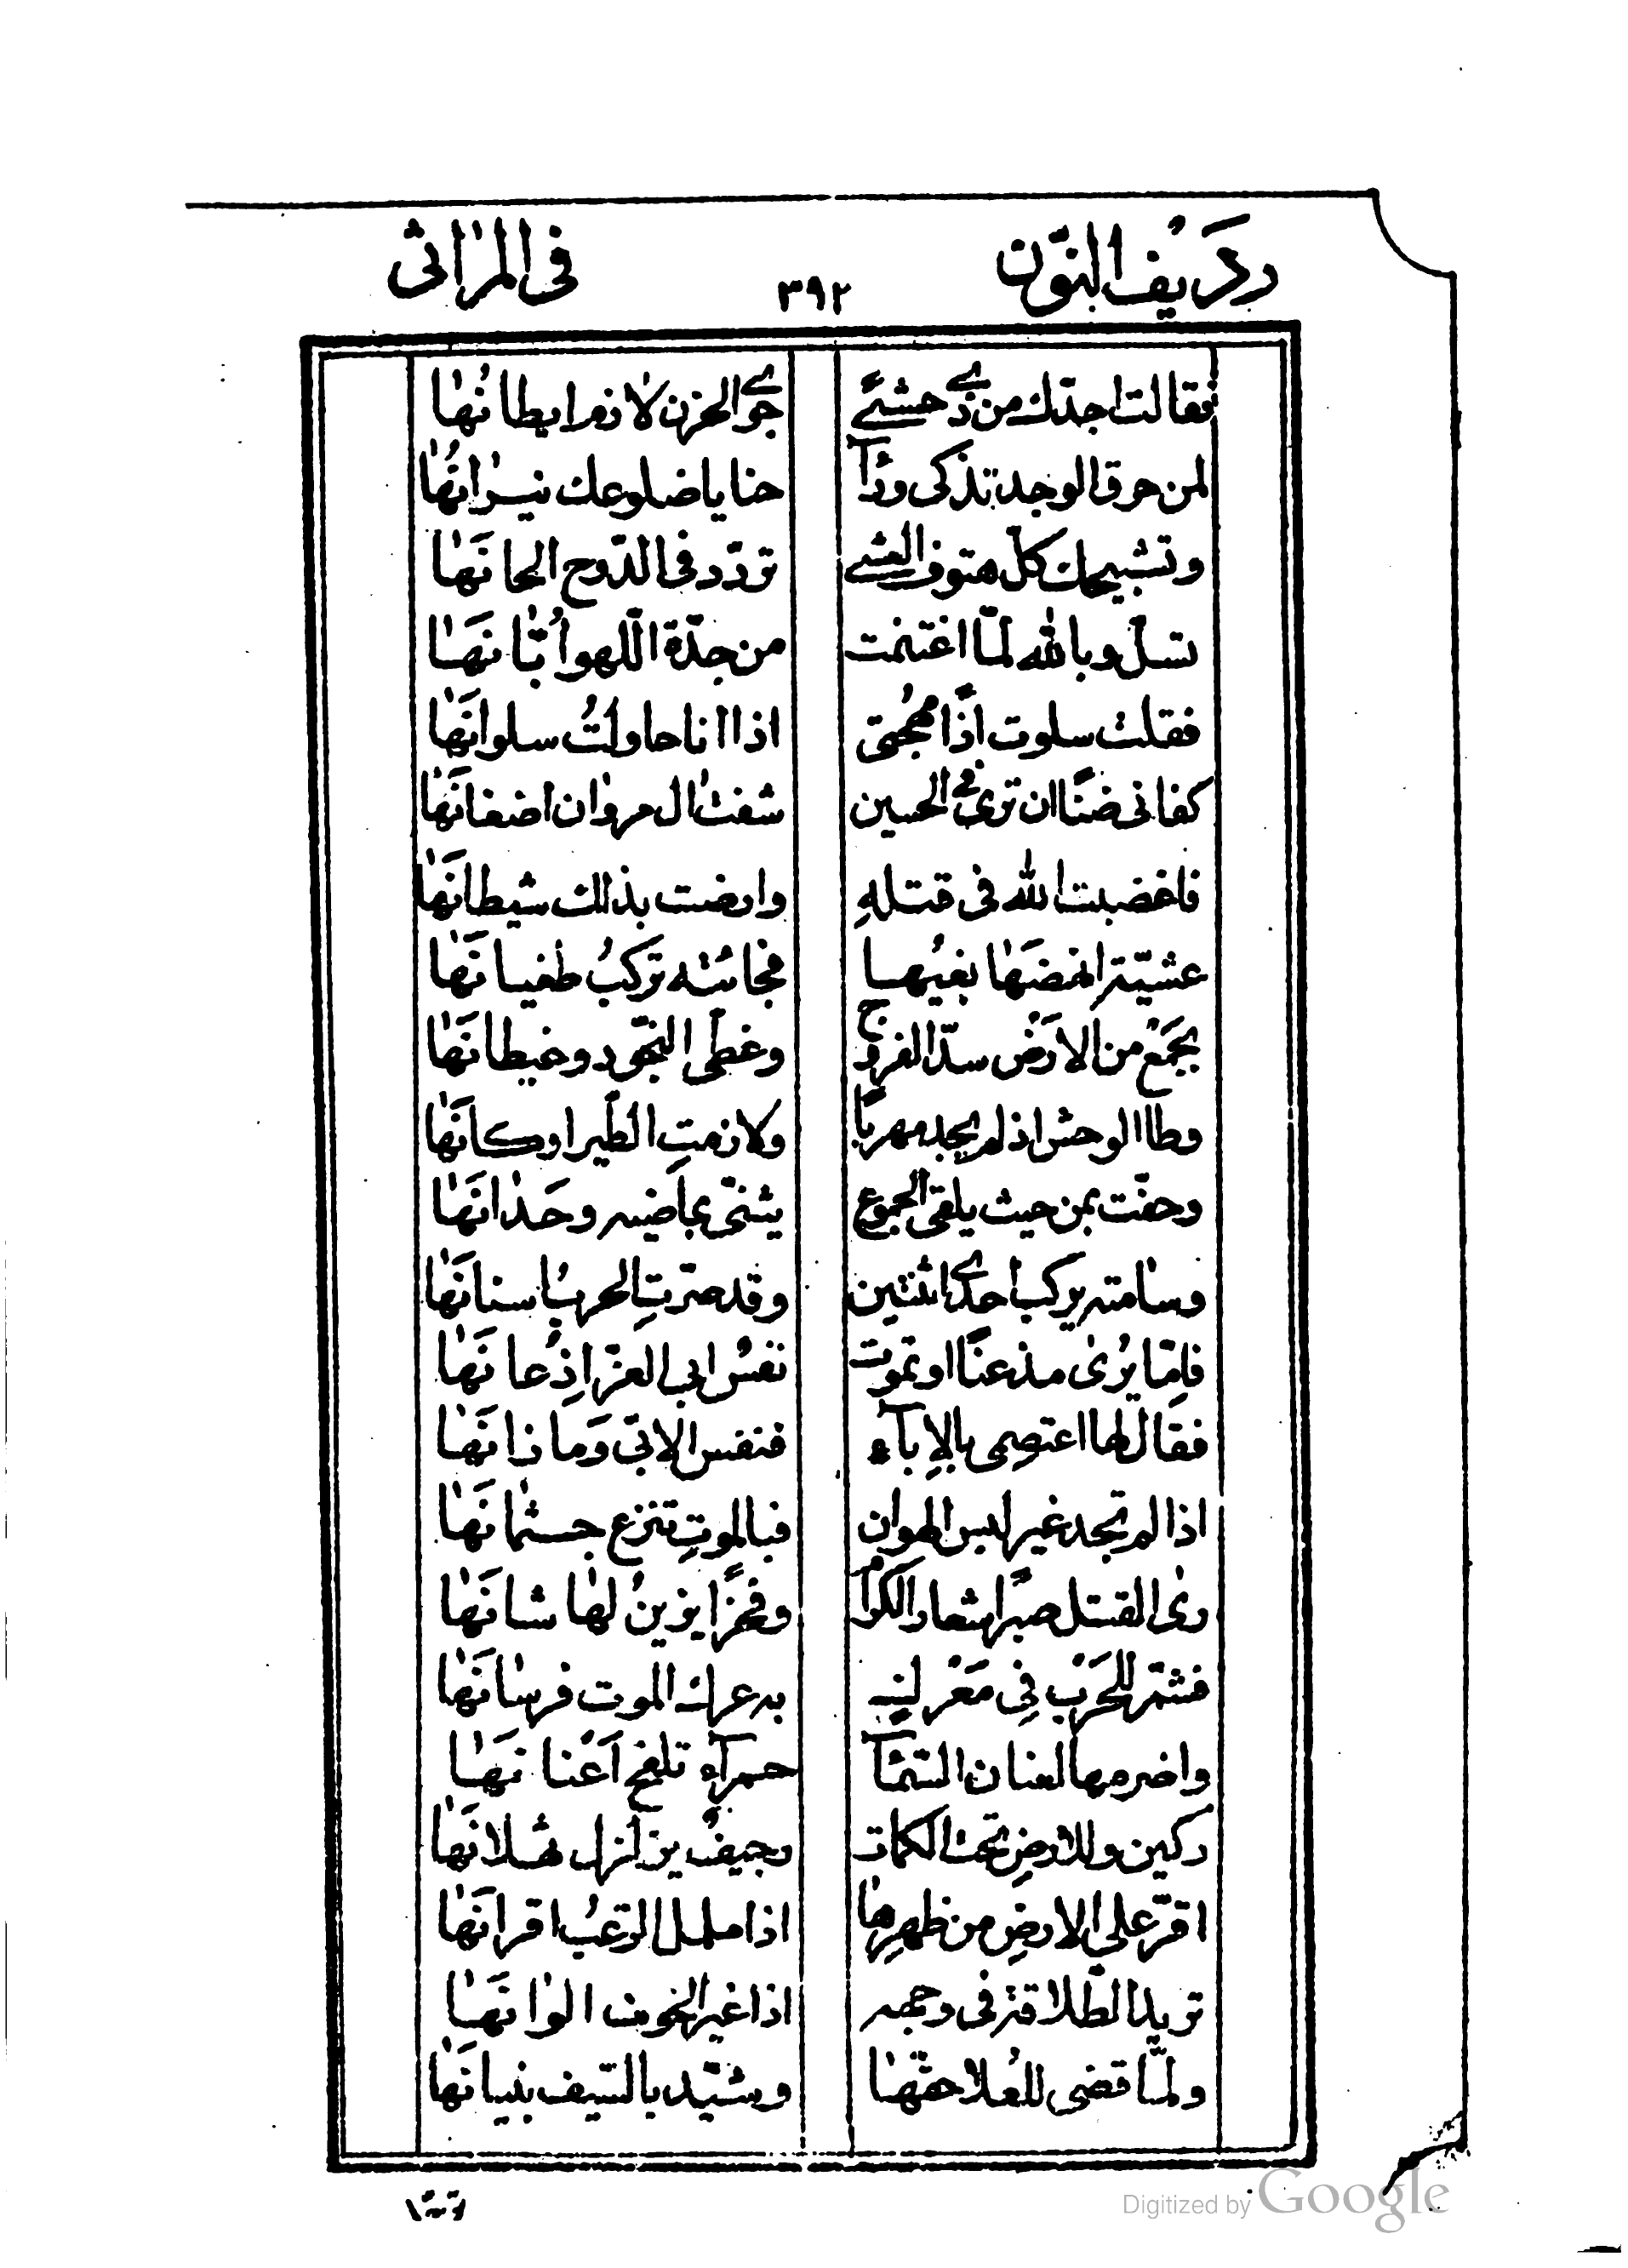 رديف النون ٣٩٢ فى المراثى
فقالت اجدّك من ذى حشىً جوى الحزن لازم ايطانها
لمن حرق الوجد تذكى ورآء حنايا ضلوعك نيرانها
وتشبيهك كل هتوف العشى تردّد فى الدّوح الحانها
تسلّ وبالله لمّا اغتنمت من جدّة اللهو ابّانها
فقلت سلوت اذًا مهجتى اذا انا حاولتُ سلوانها
كفانى ضنًا ان ترى فى الحسين شفت ال مروان اضغانها
فاغضبت الله فى قتلهِ وارضت بذلك شيطانها
عشيّة انهضها بغيُها فجائته تركبُ طغيانها
بجمع من الارض سدّ الفروج وغطى النجود وغيطانها
وطا الوحش اذ لم يجد مهربًا ولازمت الطير اوكانها
وحفّت بمن حيث يلقى الجموع يثنى بماضيه وحدانها
وسامته يركب احدى اثنتين وقد صرّت الحرب اسنانها
فامّا يُرى مذعنًا او تموت نفس ابى العزّ اذعانها
فقال لها اعتصمى بالإبآء فنفس الابى وما زانها
اذا لم تجد غير لبس الهوان فبالموتِ تنزع جثمانها
رى القتل صبرا شعار الكرام وفخرًا يزينُ لها شانها
فشمّر للحرب فى معركٍ به عرك الموت فرسانها
واضرمها لعنان السّمآء حمرآء تلفح اعنانها
ركين وللارضِ تحت الكمات رجيفٌ يزلزل ثهلانها
اقرّ على الارضِ من ظهرها اذا ململ الرعبُ اقرانها
تزيد الطّلاقة فى وجهه اذا غيّر الخوف الوانها
ولمّا قضى للعُلا حقّها وشيّد بالسّيف بنيانها
Digitized by Google